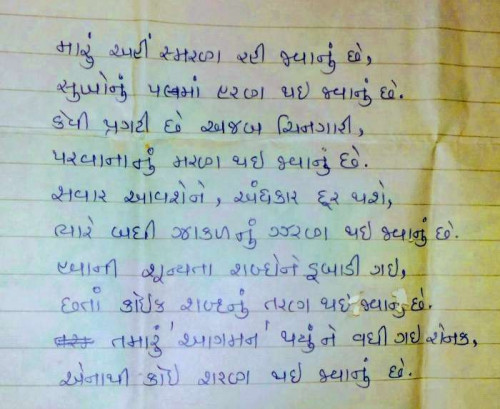 મારું અહીં સ્મરણ રહી જવાનું છે,
સુખોનું પલમાં હરણ થઇ જવાનું છે.
કેવી પ્રગટી છે અજબ ચિનગારી,
પરવાનાનું મરણ થઇ જવાનું છે.
સવાર આવશેને, અંધકાર દૂર થશે,
ત્યારે બધી ઝાકળનું ઝરણ થઇ જવાનું છે.
શૂન્યતા શબ્દોને ડૂબાડી ગઇ,
છતાં કોઇક શબ્દનું તરણ થઇ જવાનું છે.
તમારું 'આગમન' થયું ને વધી ગઇ રોનક,
એનાથી કોઇ શરણ થઇ જવાનું છે.